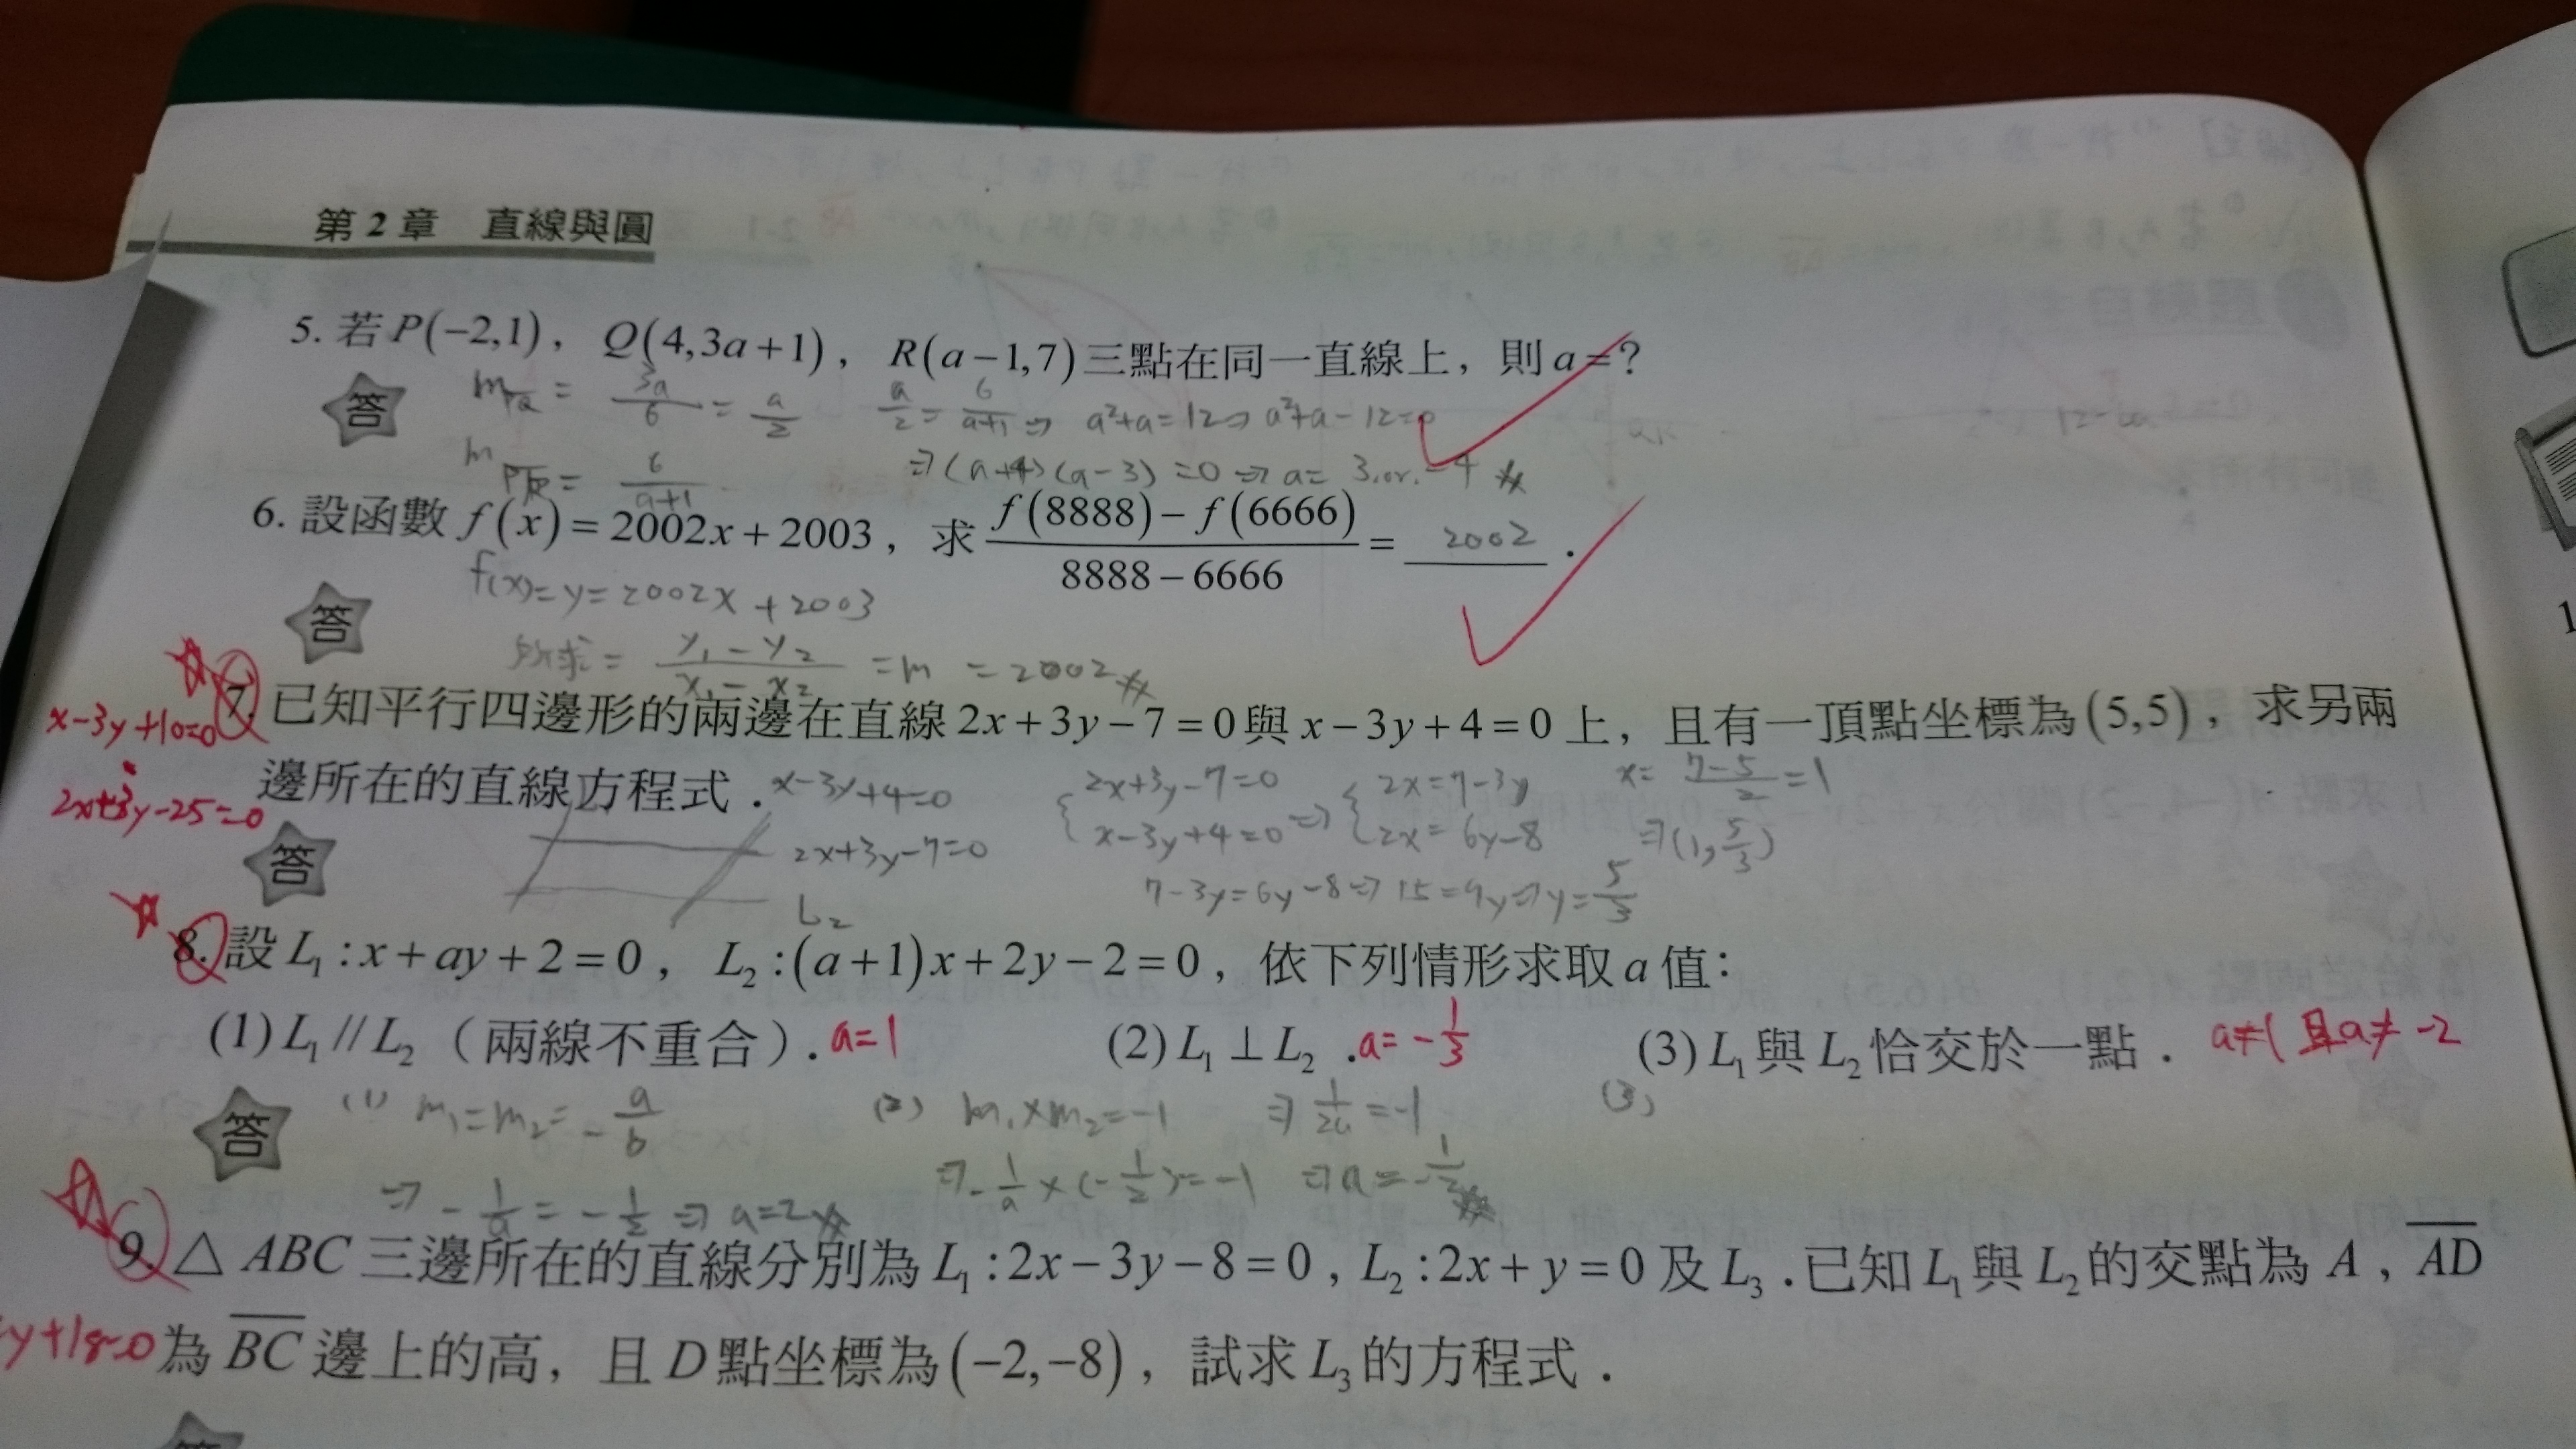 第2章 直線與圓
5. 若P(−2,1), Q(4,3a+1), R(a−1,7)三點在同一直線上,則a=?
答
m_PQ = 3a/6 = a/2  a/2 = 6/(a+1) ⇒ a²+a=12 ⇒ a²+a−12=0
m_PR = 6/(a+1)  ⇒ (a+4)(a−3)=0 ⇒ a= 3.or.−4
6. 設函數 f(x)=2002x+2003,求 (f(8888)−f(6666))/(8888−6666) = 2002 .
f(x)=y=2002x+2003
答
所求= (y₁−y₂)/(x₁−x₂) =m =2002
7. 已知平行四邊形的兩邊在直線2x+3y−7=0與x−3y+4=0上,且有一頂點坐標為(5,5),求另兩
x−3y+10=0
邊所在的直線方程式.
2x+3y−25=0
答
x−3y+4=0
2x+3y−7=0
L₂
{2x+3y−7=0 x−3y+4=0 ⇒ {2x=7−3y 2x=6y−8
7−3y=6y−8 ⇒ 15=9y ⇒ y=5/3
x= (7−5)/2 =1
⇒(1,5/3)
8. 設L₁:x+ay+2=0, L₂:(a+1)x+2y−2=0,依下列情形求取a值:
(1)L₁//L₂(兩線不重合). a=1 (2)L₁⊥L₂. a=−1/3 (3)L₁與L₂恰交於一點. a≠1且a≠−2
答
(1) m₁=m₂=−a/b (2) m₁×m₂=−1 ⇒ 1/2a=−1 (3)
⇒ −1/a=−1/2 ⇒ a=2 ⇒ −1/a×(−1/2)=−1 ⇒ a=−1/2
9. △ABC三邊所在的直線分別為L₁:2x−3y−8=0,L₂:2x+y=0及L₃.已知L₁與L₂的交點為A,AD
y+18=0
為BC邊上的高,且D點坐標為(−2,−8),試求L₃的方程式.
答